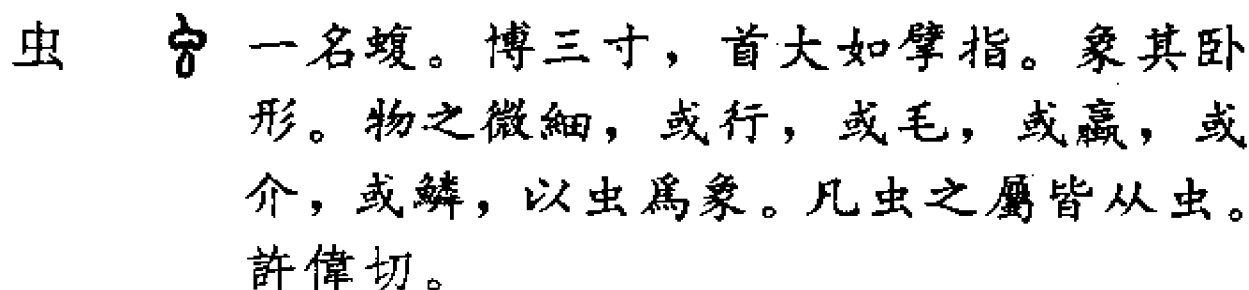 虫 一名蝮。博三寸，首大如擘指。象其卧
形。物之微細，或行，或毛，或蠃，或
介，或鱗，以虫爲象。凡虫之屬皆从虫。
許偉切。